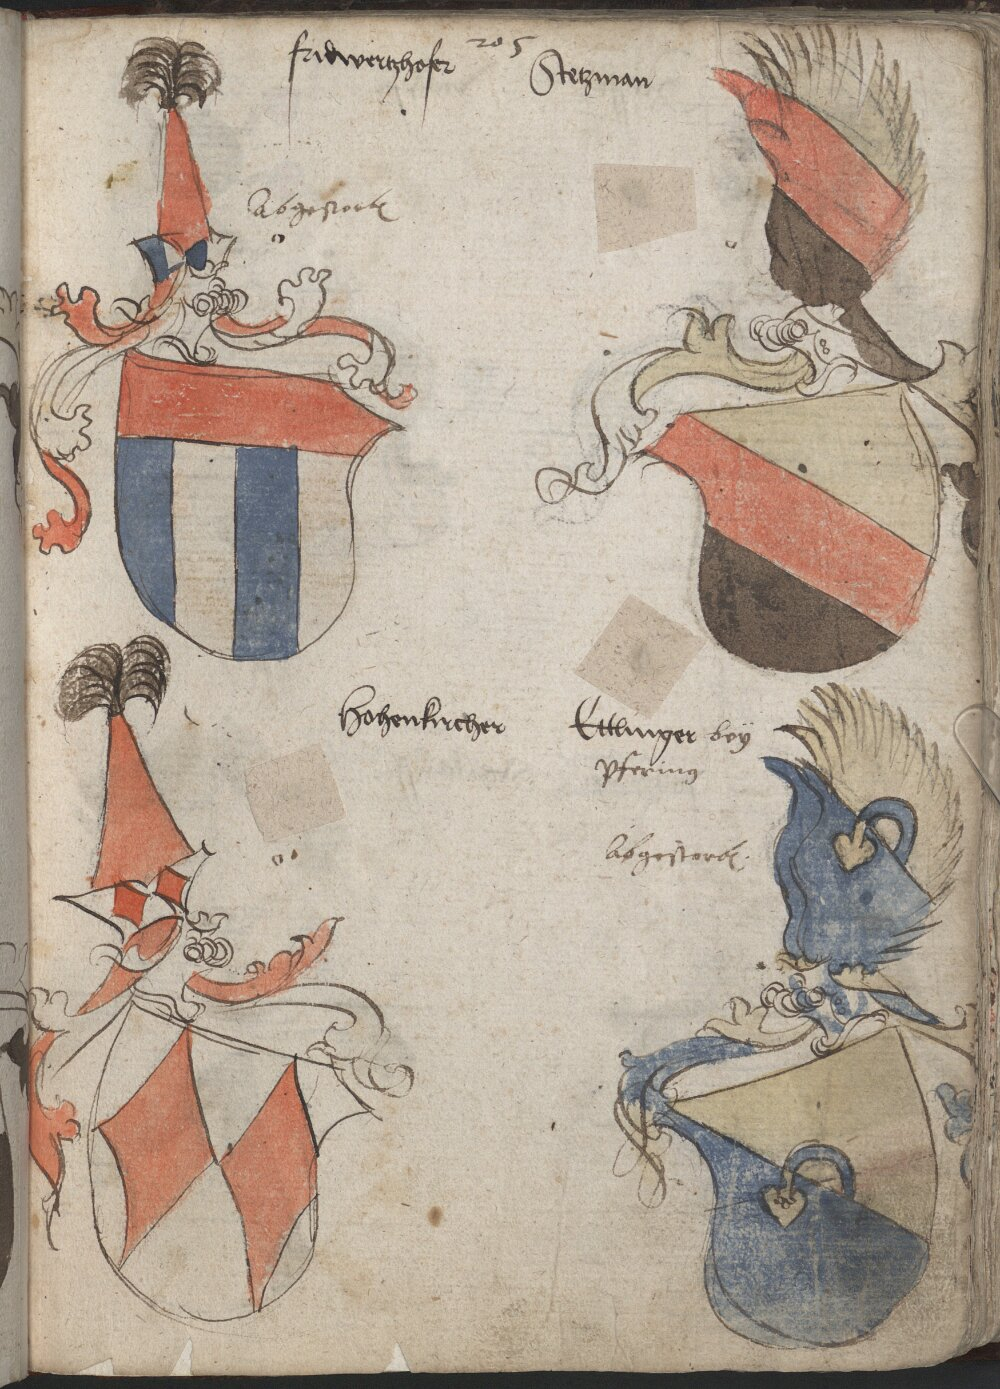 fridwertzhofer
205
Stetzman
Abgestorb
Hohenkircher
Ettlinger beÿ
Pfering
Abgestorb.